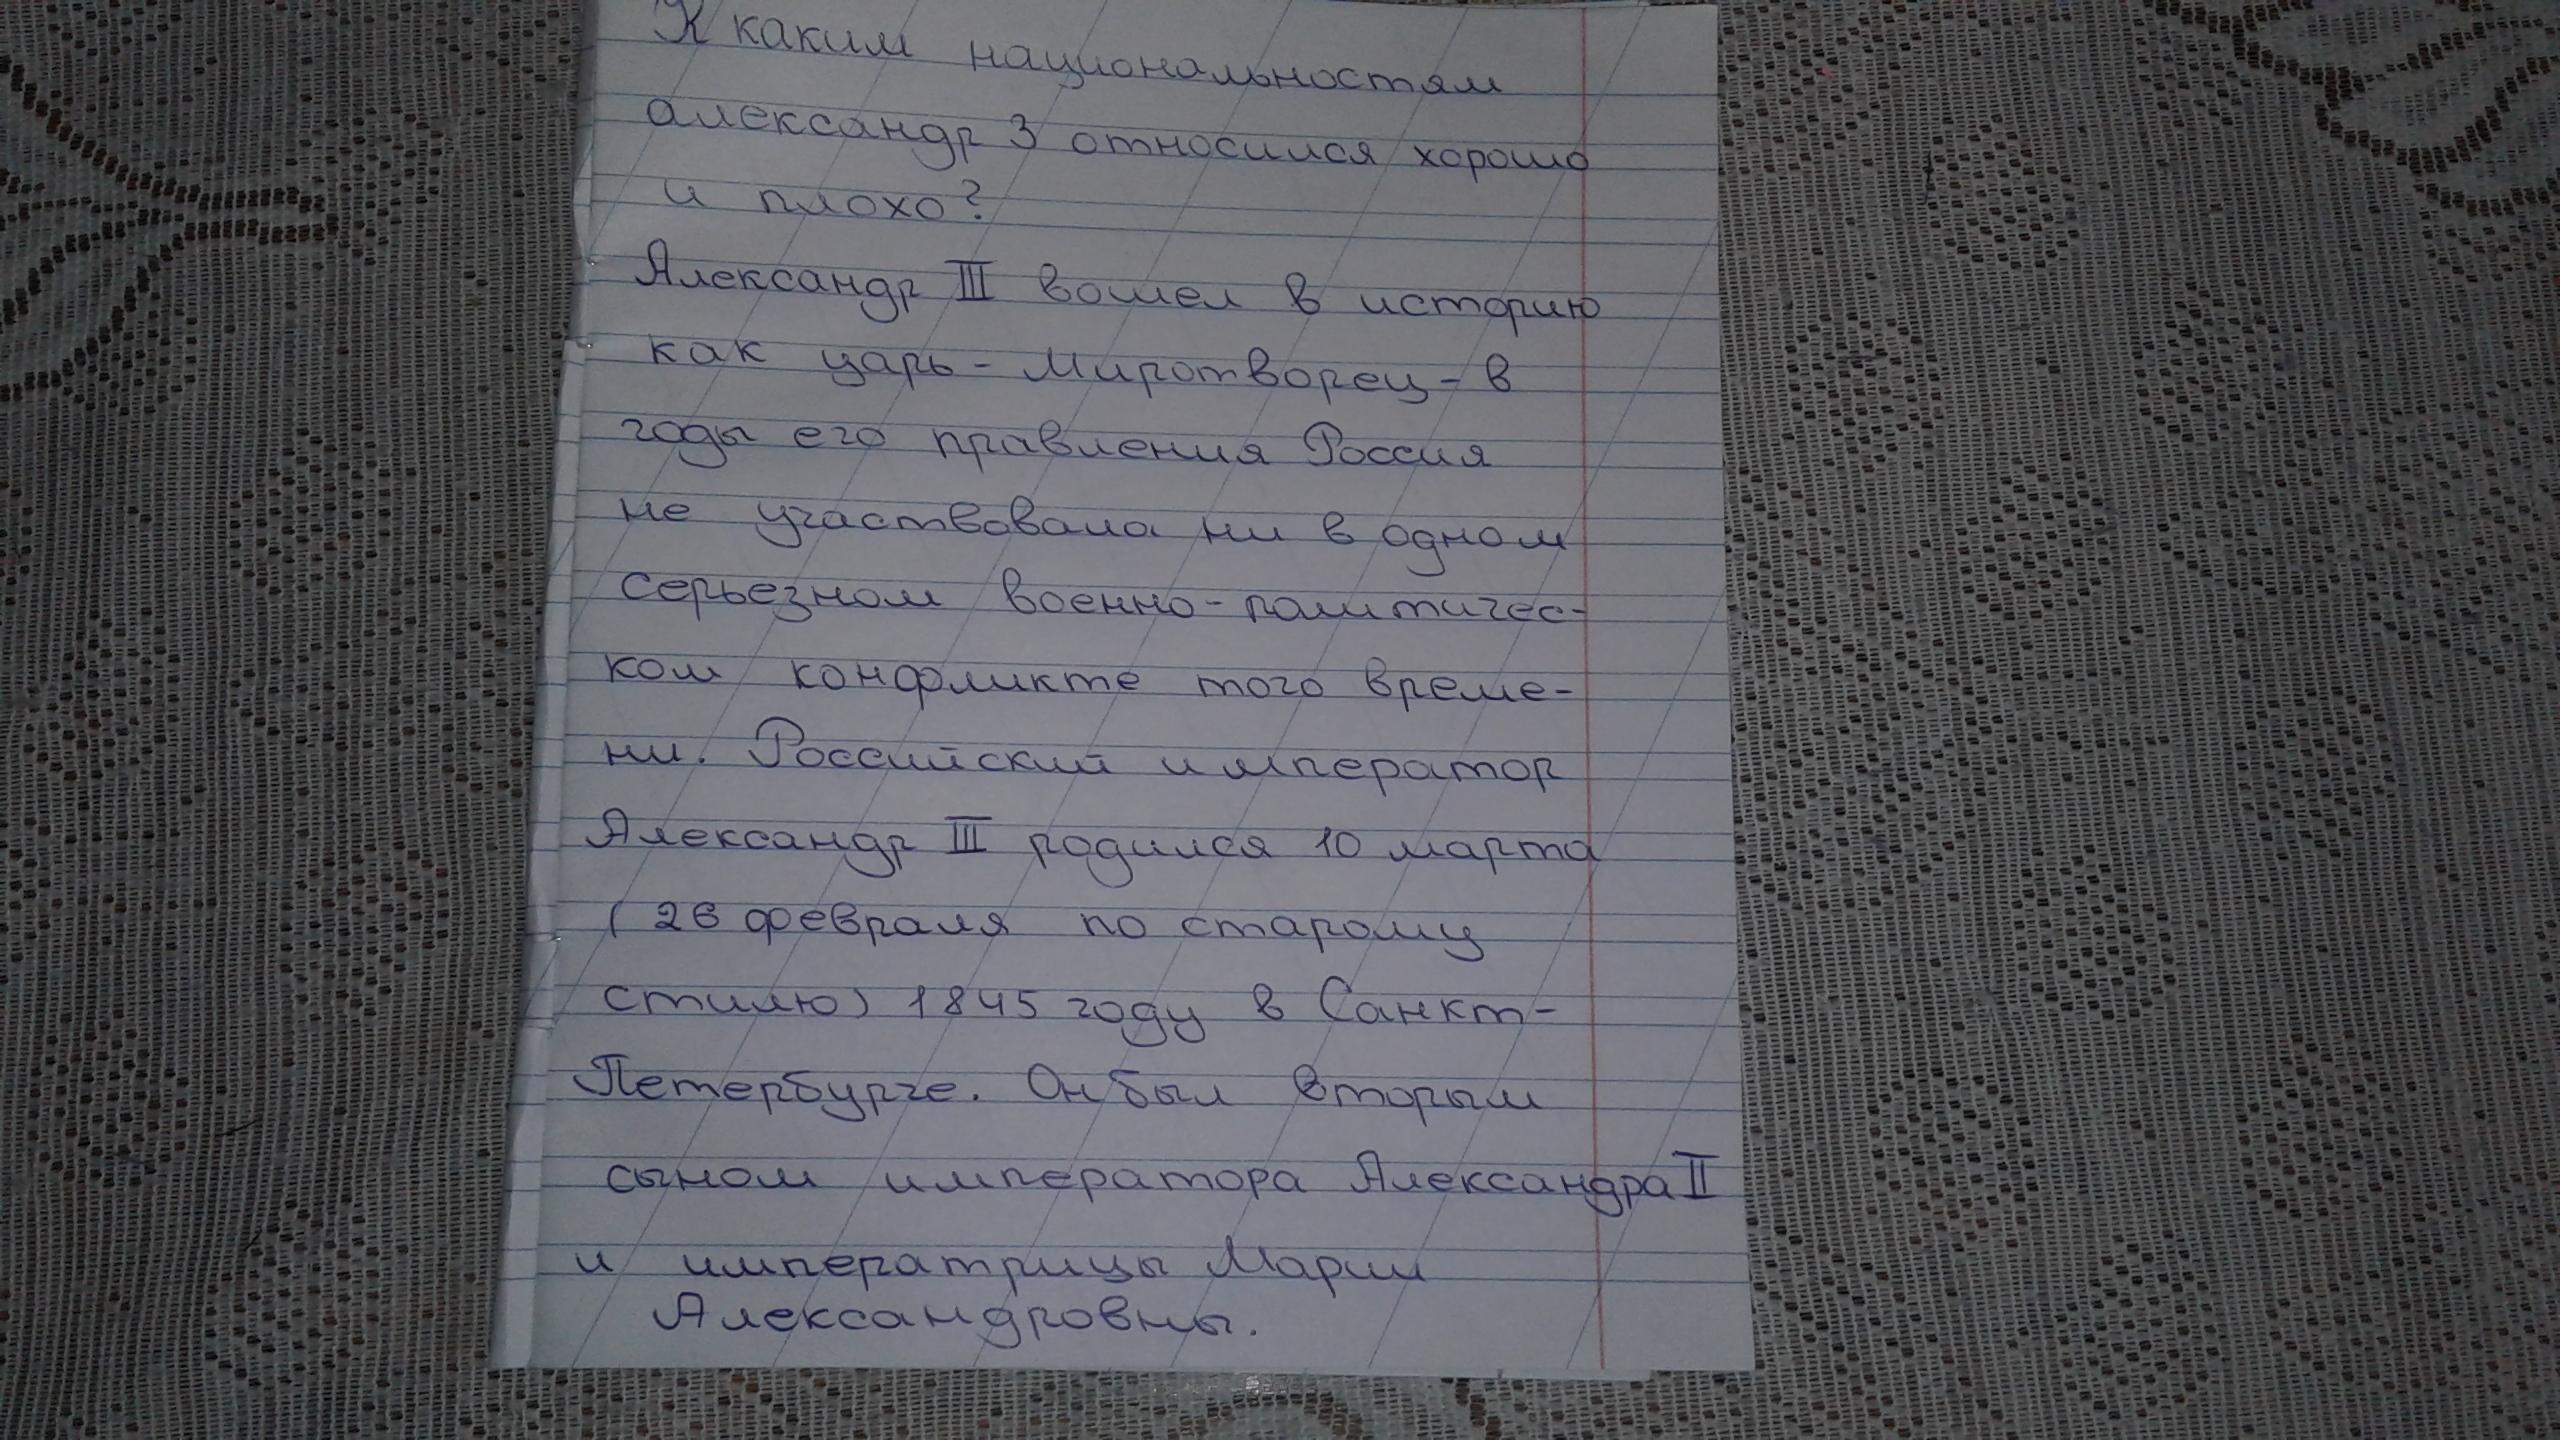 К каким национальностям
александр 3 относился хорошо
и плохо?
Александр III вошел в историю
как царь - Миротворец - в
годы его правления Россия
не участвовала ни в одном
серьезном военно-политичес-
ком конфликте того време-
ни. Российский император
Александр III родился 10 марта
(26 февраля по старому
стилю) 1845 году в Санкт-
Петербурге. Он был вторым
сыном императора Александра II
и императрицы Марии
Александровны.